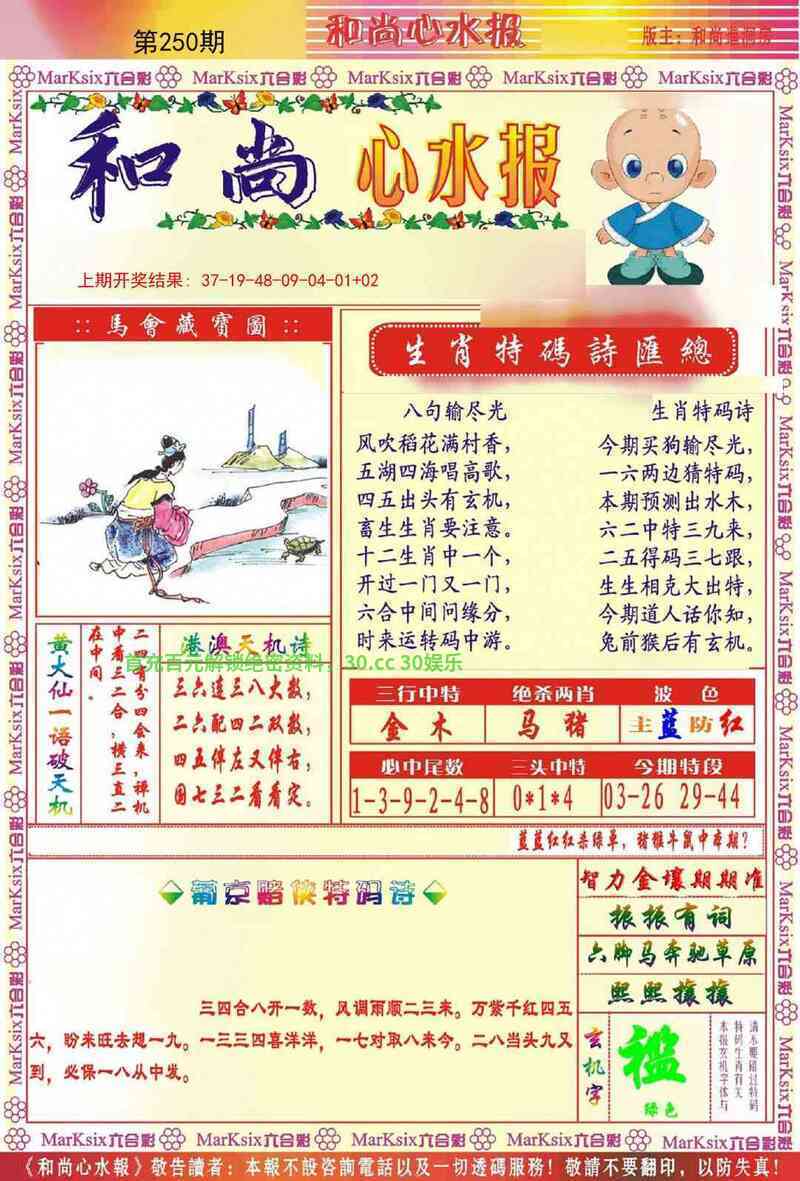 第250期
和尚心水报
MarKsix六合彩 MarKsix六合彩 MarKsix六合彩 MarKsix六合彩 MarKsix六合彩
和尚 心水报
上期开奖结果：37-19-48-09-04-01+02
:: 馬會藏寶圖 ::
生肖特碼詩匯總
八句输尽光
风吹稻花满村香，
五湖四海唱高歌，
四五出头有玄机，
畜生生肖要注意。
十二生肖中一个，
开过一门又一门，
六合中间问缘分，
时来运转码中游。
生肖特码诗
今期买狗输尽光，
一六两边猜特码，
本期预测出水木，
六二中特三九来，
二五得码三七跟，
生生相克大出特，
今期道人话你知，
兔前猴后有玄机。
黄大仙一语破天机
二四有分四会来，禅机
中看三二合，横三直二
在中间。
港澳天机诗
首充百元解锁绝密资料，30.cc 30娱乐
三六连三八大数，
二六配四二双数，
四五伴左又伴右，
因七三二看看定。
三行中特 绝杀两肖 波色
金木 马猪 主蓝防红
必中尾数 三头中特 今期特段
1-3-9-2-4-8 0*1*4 03-26 29-44
蓝蓝红红杀绿单，猪猴牛鼠中本期？
葡京赌侠特码诗
三四合八开一数，风调雨顺二三来。万紫千红四五
六，盼来旺去想一九。一三三四喜洋洋，一七对取八来今。二八当头九又
到，必保一八从中发。
智力金壤期期准
振振有词
六脚马奔驰草原
熙熙攘攘
玄机字
褴
绿色
清水腰鼓过特码
特码生肖有关
本报玄机字体与
MarKsix六合彩 MarKsix六合彩 MarKsix六合彩 MarKsix六合彩 MarKsix六合彩
《和尚心水報》敬告讀者：本報不設咨詢電話以及一切透碼服務！敬請不要翻印，以防失真！